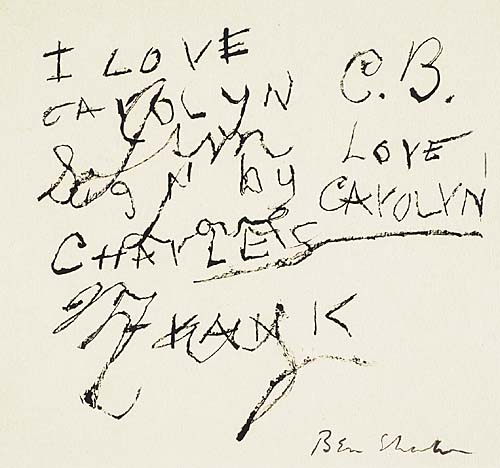 I LOVE
CAROLYN
Sign by
CHARLES
FRANK
C.B.
LOVE
CAROLYN
Ben Shahn